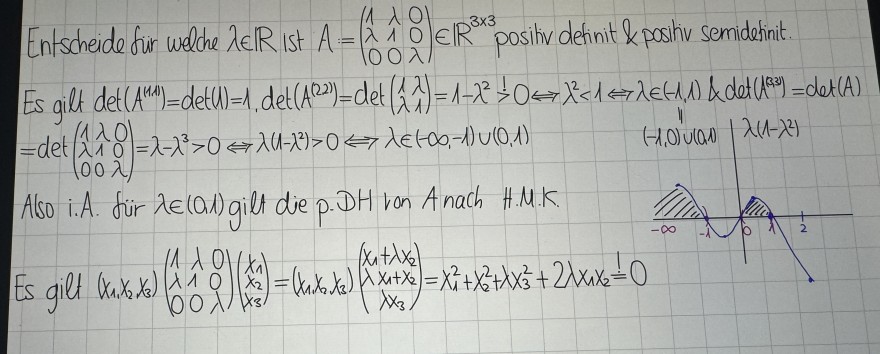 Entscheide für welche λ∈ℝ ist A := (1 λ 0; λ 1 0; 0 0 λ) ∈ℝ^{3×3} positiv definit & positiv semidefinit.
Es gilt det(A^{(1,1)})=det(1)=1, det(A^{(2,2)})=det(1 λ; λ 1)=1-λ² >! 0 ⇔ λ²<1 ⇔ λ∈(-1,1) & det(A^{(3,3)})=det(A)
=det(1 λ 0; λ 1 0; 0 0 λ)=λ-λ³>0 ⇔ λ(1-λ²)>0 ⇔ λ∈(-∞,-1)∪(0,1)
(-1,0)∪(0,1)
λ(1-λ²)
Also i.A. für λ∈(0,1) gilt die p.DH von A nach H.M.K.
-∞ -1 0 1 2
Es gilt (x₁,x₂,x₃)(1 λ 0; λ 1 0; 0 0 λ)(x₁; x₂; x₃)=(x₁,x₂,x₃)(x₁+λx₂; λx₁+x₂; λx₃)=x₁²+x₂²+λx₃²+2λx₁x₂ =! 0